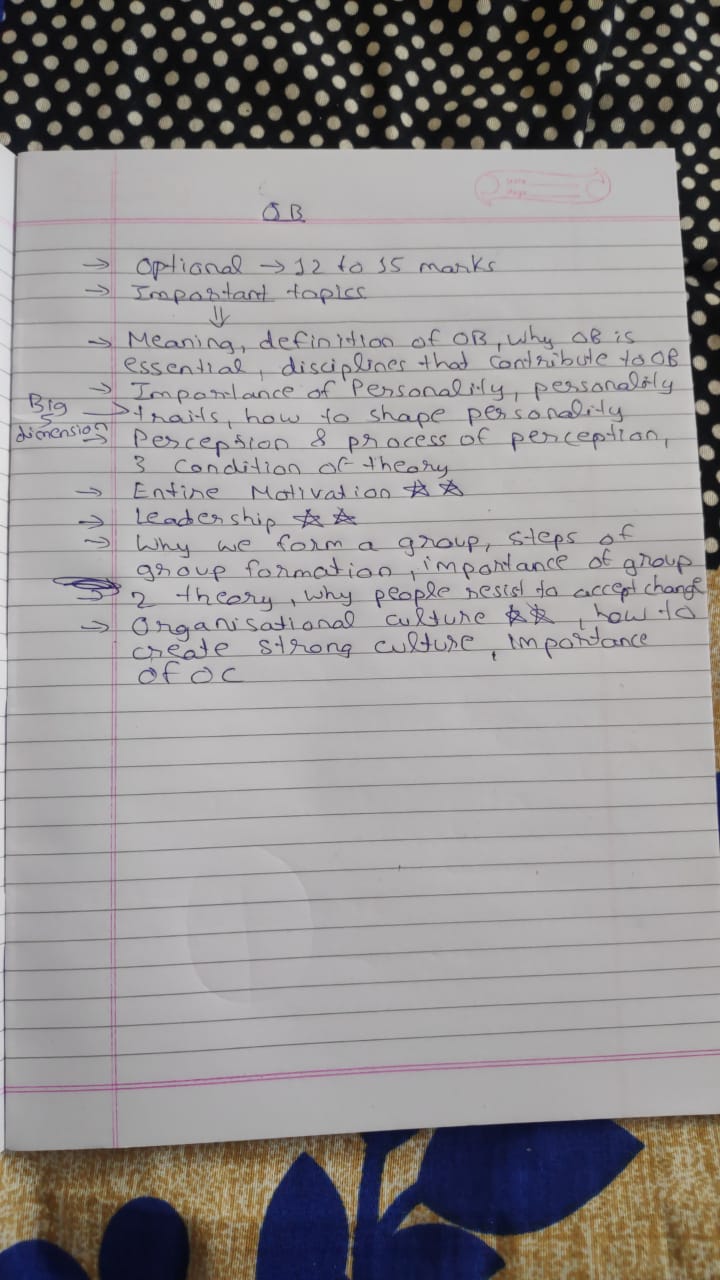 OB
→ Optional → 12 to 15 marks
→ Important topics
⇓
→ Meaning, definition of OB, why OB is
essential, disciplines that contribute to OB
→ Importance of Personality, personality
Big 5 dimension → traits, how to shape personality
→ Perception & process of perception,
3 condition of theory
→ Entire Motivation ☆☆
→ Leadership ☆☆
→ Why we form a group, steps of
group formation, importance of group
→ 2 theory, why people resist to accept change
→ Organisational culture ☆☆, how to
create strong culture, importance
of OC